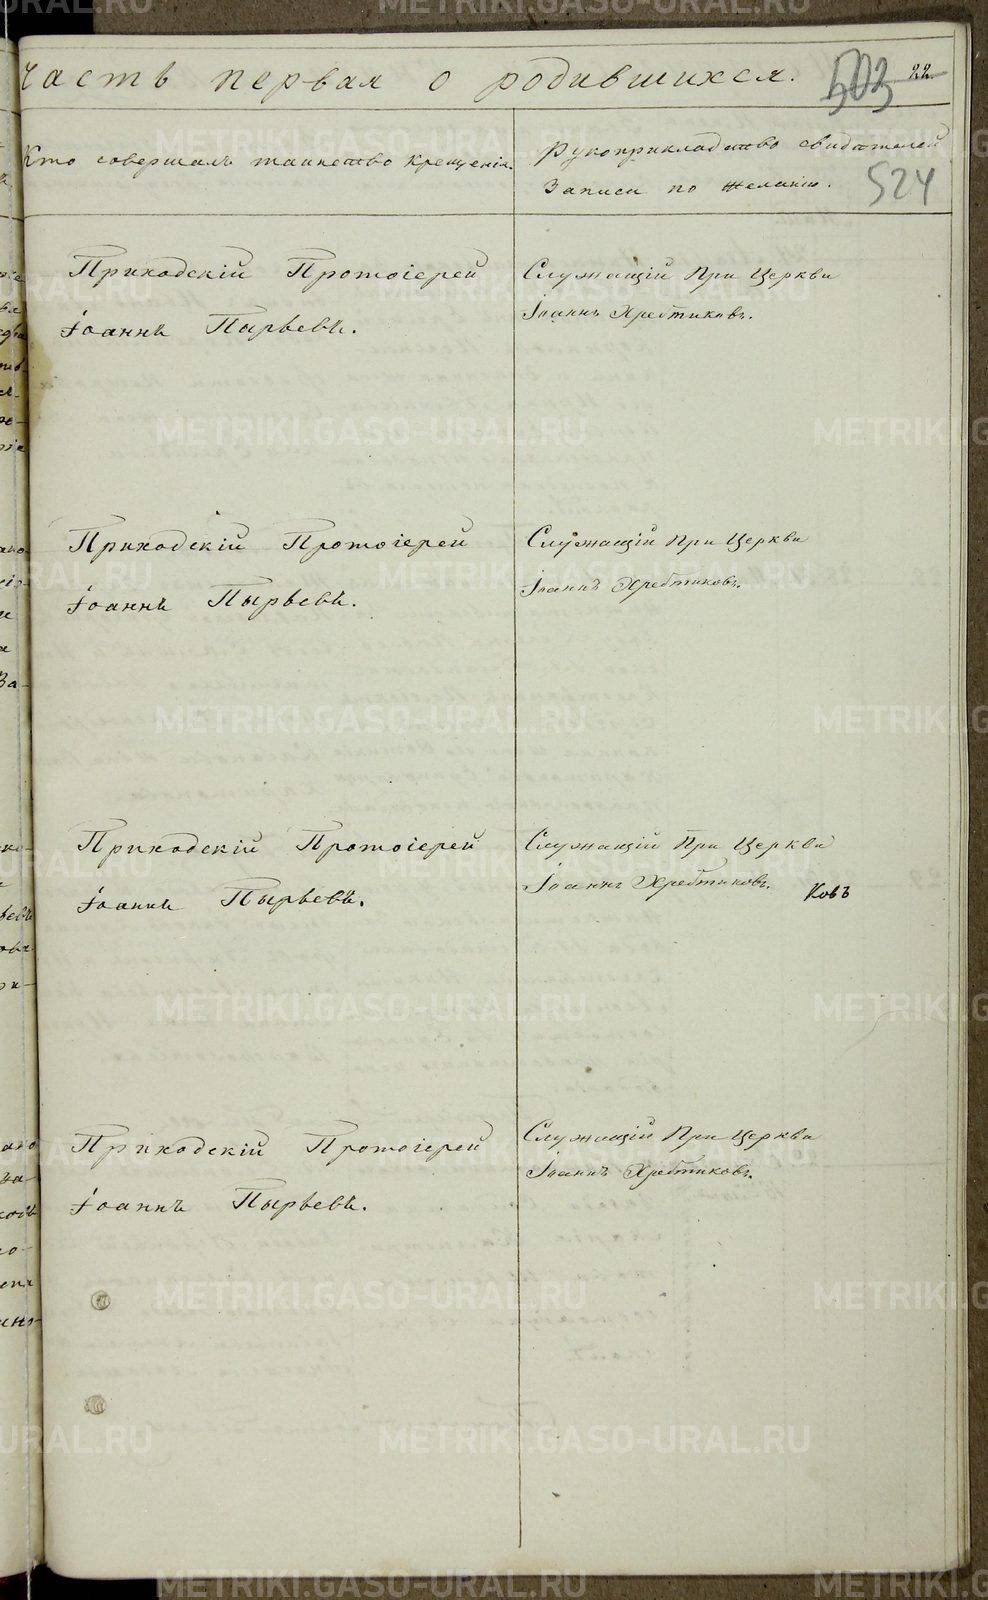 часть первая о родившихся.
503
22
Кто совершалъ таинство крещенія.
Рукоприкладство свидѣтелей
записи по желанію.
524
Приходскій Протоіерей
Іоаннъ Пырьевъ.
Служащій При Церкви
Іоаннъ Хребтиковъ.
Приходскій Протоіерей
Іоаннъ Пырьевъ.
Служащій При Церкви
Іоаннъ Хребтиковъ.
Приходскій Протоіерей
Іоаннъ Пырьевъ.
Служащій При Церкви
Іоаннъ Хребтиковъ.
Ковъ
Приходскій Протоіерей
Іоаннъ Пырьевъ.
Служащій При Церкви
Іоаннъ Хребтиковъ.
METRIKI.GASO-URAL.RU